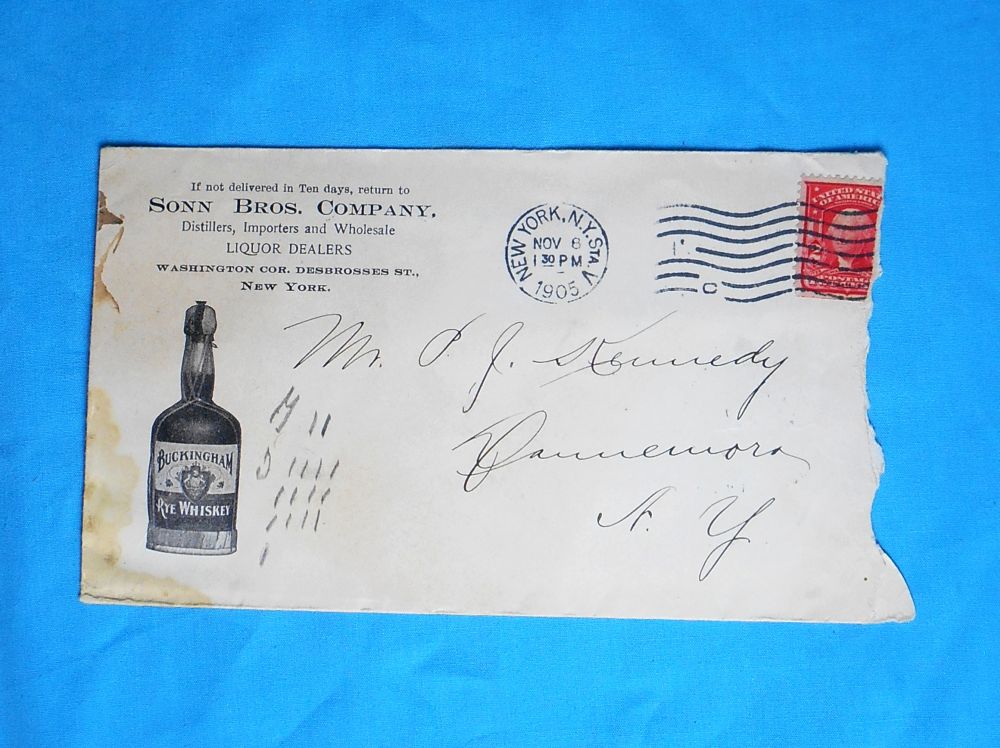 If not delivered in Ten days, return to
SONN BROS. COMPANY,
Distillers, Importers and Wholesale
LIQUOR DEALERS
WASHINGTON COR. DESBROSSES ST.,
NEW YORK.
NEW YORK, N.Y. STA. V
NOV 6
1 30 PM
1905
C
UNITED STATES
OF AMERICA
2
POSTAGE
Mr. P. J. Kennedy
Dannemora
N. Y.
BUCKINGHAM
RYE WHISKEY